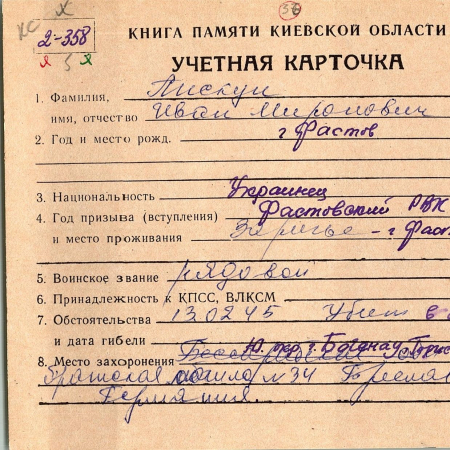 38
2-358
КНИГА ПАМЯТИ КИЕВСКОЙ ОБЛАСТИ
УЧЕТНАЯ КАРТОЧКА
1. Фамилия, Пискун
имя, отчество Иван Миронович
2. Год и место рожд. г Фастов
3. Национальность Украинец
4. Год призыва (вступления) Фастовский РВК
и место проживания Заречье - г Фаст
5. Воинское звание рядовой
6. Принадлежность к КПСС, ВЛКСМ
7. Обстоятельства 130245 Убит в
и дата гибели
8. Место захоронения
братская могила N 34 Бреслав
Германия.